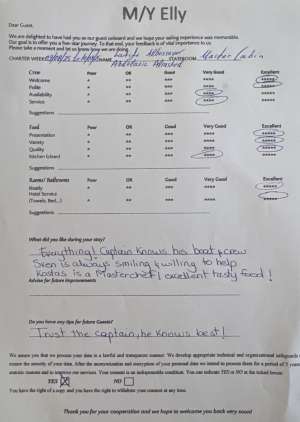 M/Y Elly
Dear Guest,
We are delighted to have had you as our guest onboard and we hope your sailing experience was memorable.
Our goal is to offer you a five-star journey. To that end, your feedback is of vital importance to us.
Please take a moment and let us know how we are doing.
CHARTER WEEK NAME STATEROOM Master Cabin
Crew Poor OK Good Very Good Excellent
Welcome * ** *** **** *****
Polite * ** *** **** *****
Availability * ** *** **** *****
Service * ** *** **** *****
Suggestions
Food Poor OK Good Very Good Excellent
Presentation * ** *** **** *****
Variety * ** *** **** *****
Quality * ** *** **** *****
Kitchen Island * ** *** **** *****
Suggestions
Rooms/ Bathrooms Poor OK Good Very Good Excellent
Ready * ** *** **** *****
Hotel Service
(Towels, Bed...) * ** *** **** *****
Suggestions
What did you like during your stay?
Everything! Captain knows his boat & crew
Sven is always smiling & willing to help
Kostas is a Masterchef! excellent tasty food!
Advise for future improvements
Do you have any tips for future Guests?
Trust the captain, he knows best!
We assure you that we process your data in a lawful and transparent context. We develop appropriate technical and organizational safeguards
ensure the security of your data. After the anonymization and encryption of your personal data we intend to process them for a period of
statistic reasons and to improve our services. Your consent is an indispensable condition. You can indicate YES or NO at the ticked boxes.
YES NO
You have the right of a copy and you have the right to withdraw your consent at any time.
Thank you for your cooperation and we hope to welcome you back very soon!